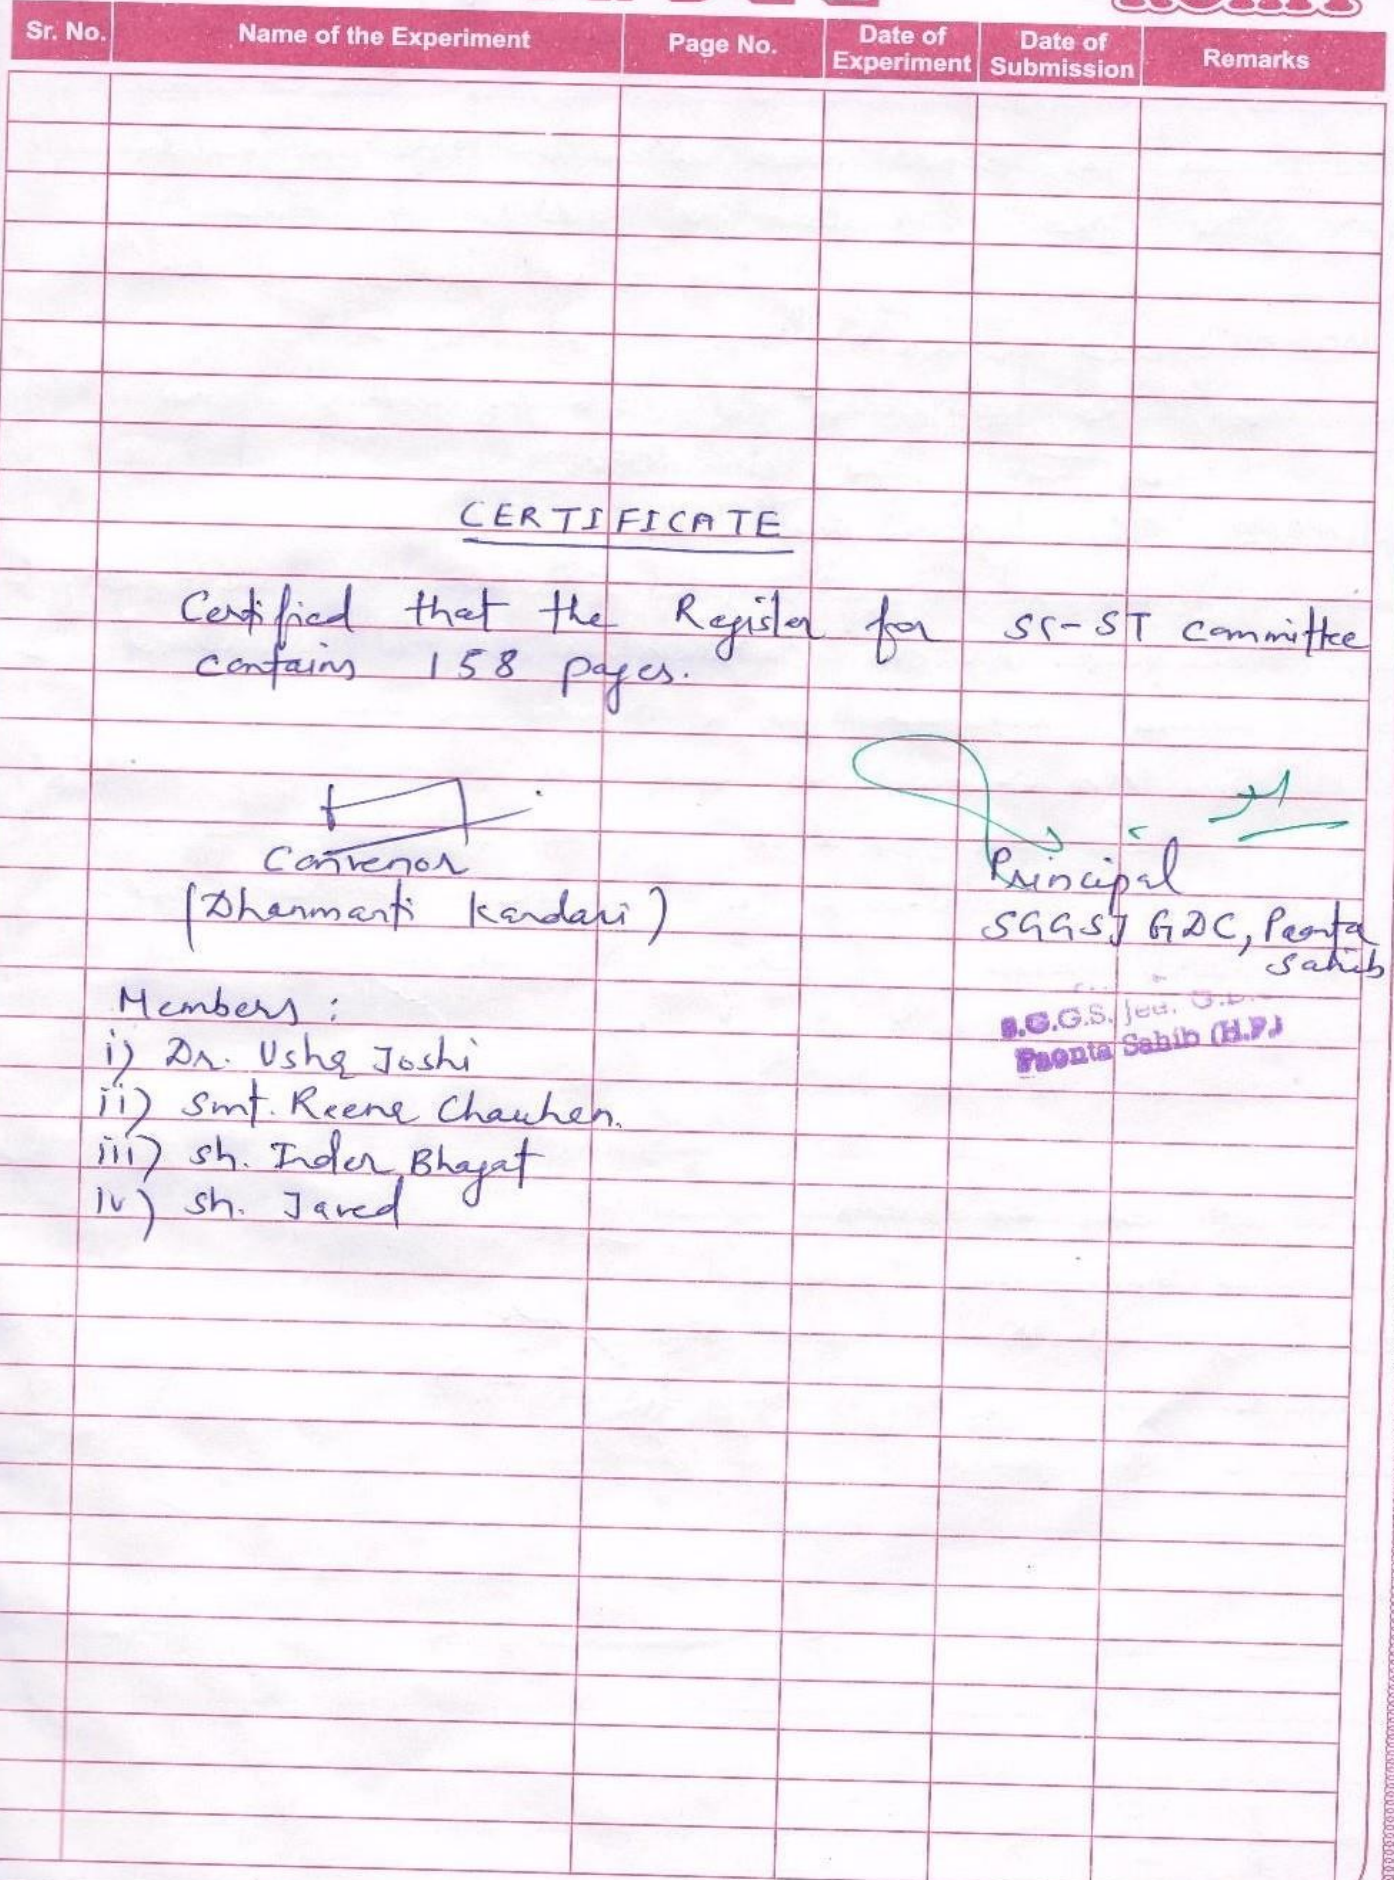 Sr. No. Name of the Experiment Page No. Date of Experiment Date of Submission Remarks
CERTIFICATE
Certified that the Register for SC-ST Committee
contains 158 pages.
Convenor
(Dharmanti Kandari)
Principal
SGGSJ GDC, Paonta
Sahib
S.G.G.S. Jed. G.D.
Paonta Sahib (H.P.)
Members :
i) Dr. Usha Joshi
ii) Smt. Reena Chauhan.
iii) Sh. Inder Bhagat
iv) Sh. Javed